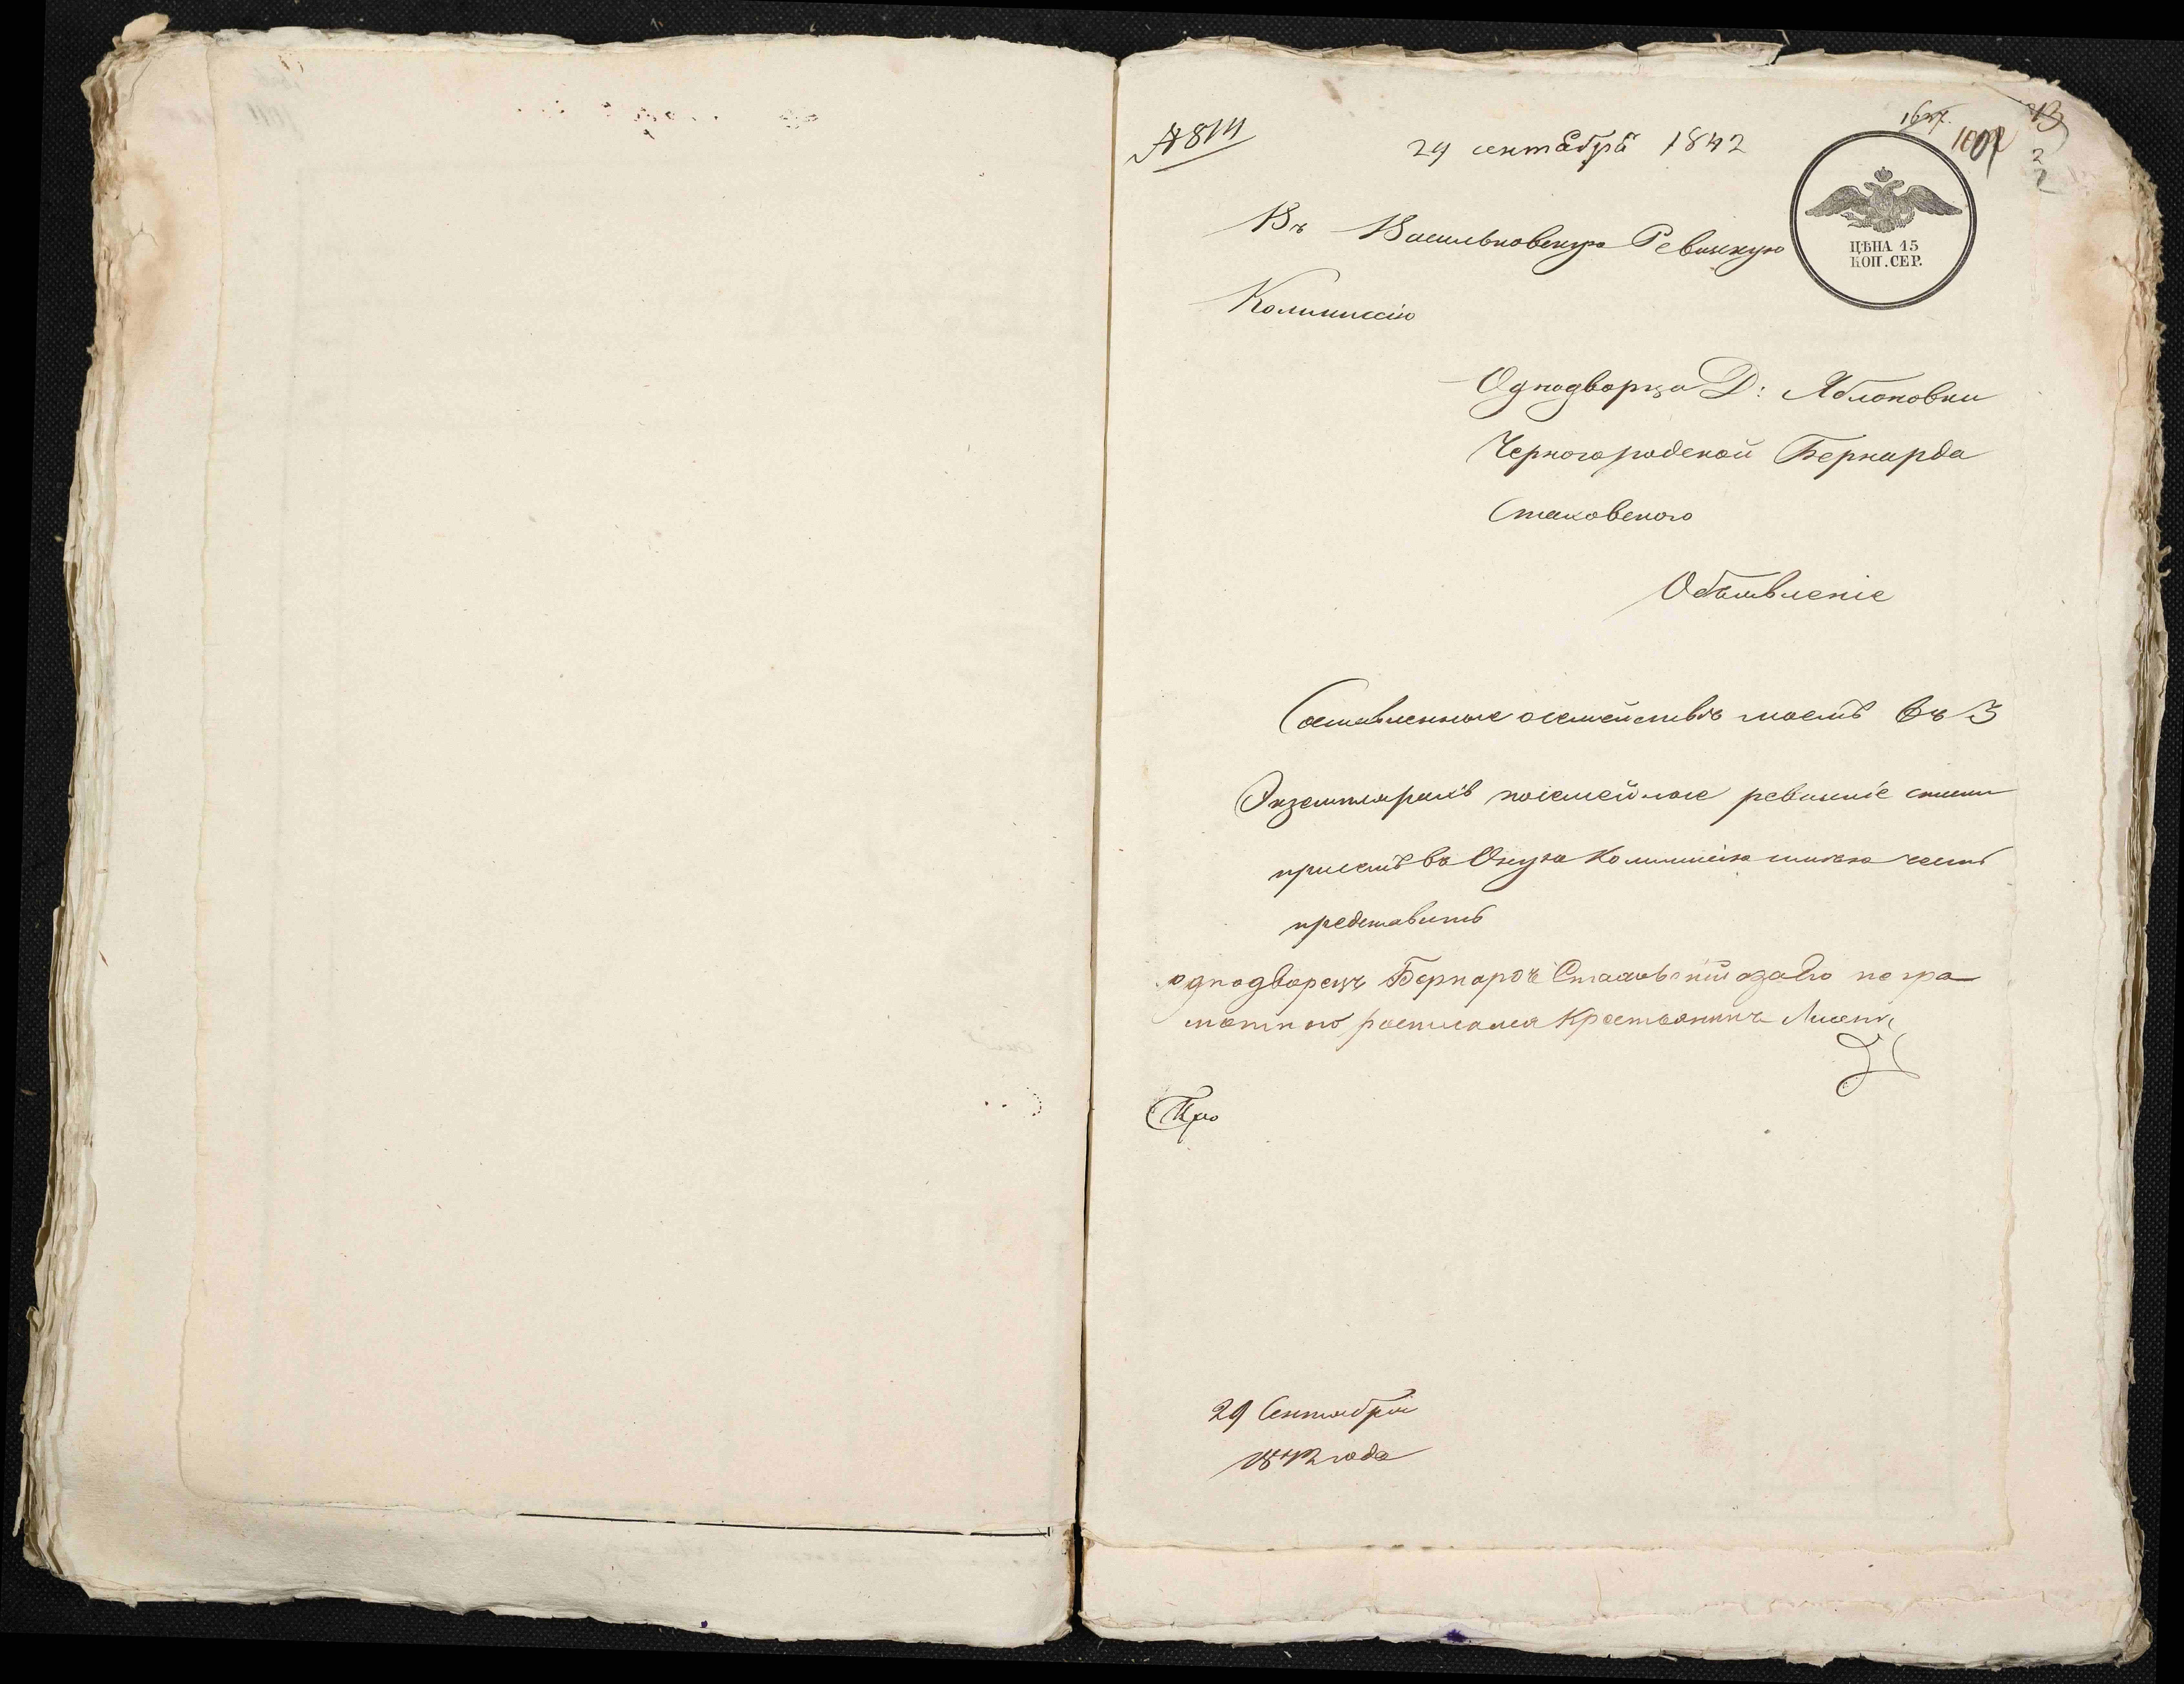 № 814
29 сентября 1842
ЦѢНА 15
КОП. СЕР.
Въ Васильковскую Ревизкую
Коммиссію
Однодворца Д: Яблоновки
Черногородской Бернарда
Стаховского
Объявленіе
Составленные о семействѣ моемъ въ 3
Экземплярахъ посемейные ревизкіе
при семъ въ Оную Коммиссію имѣю честь
представить
однодворецъ Бернардъ Стаховскій а за его негра
мотного росписался Крестьянинъ
29 Сентября
1842 года